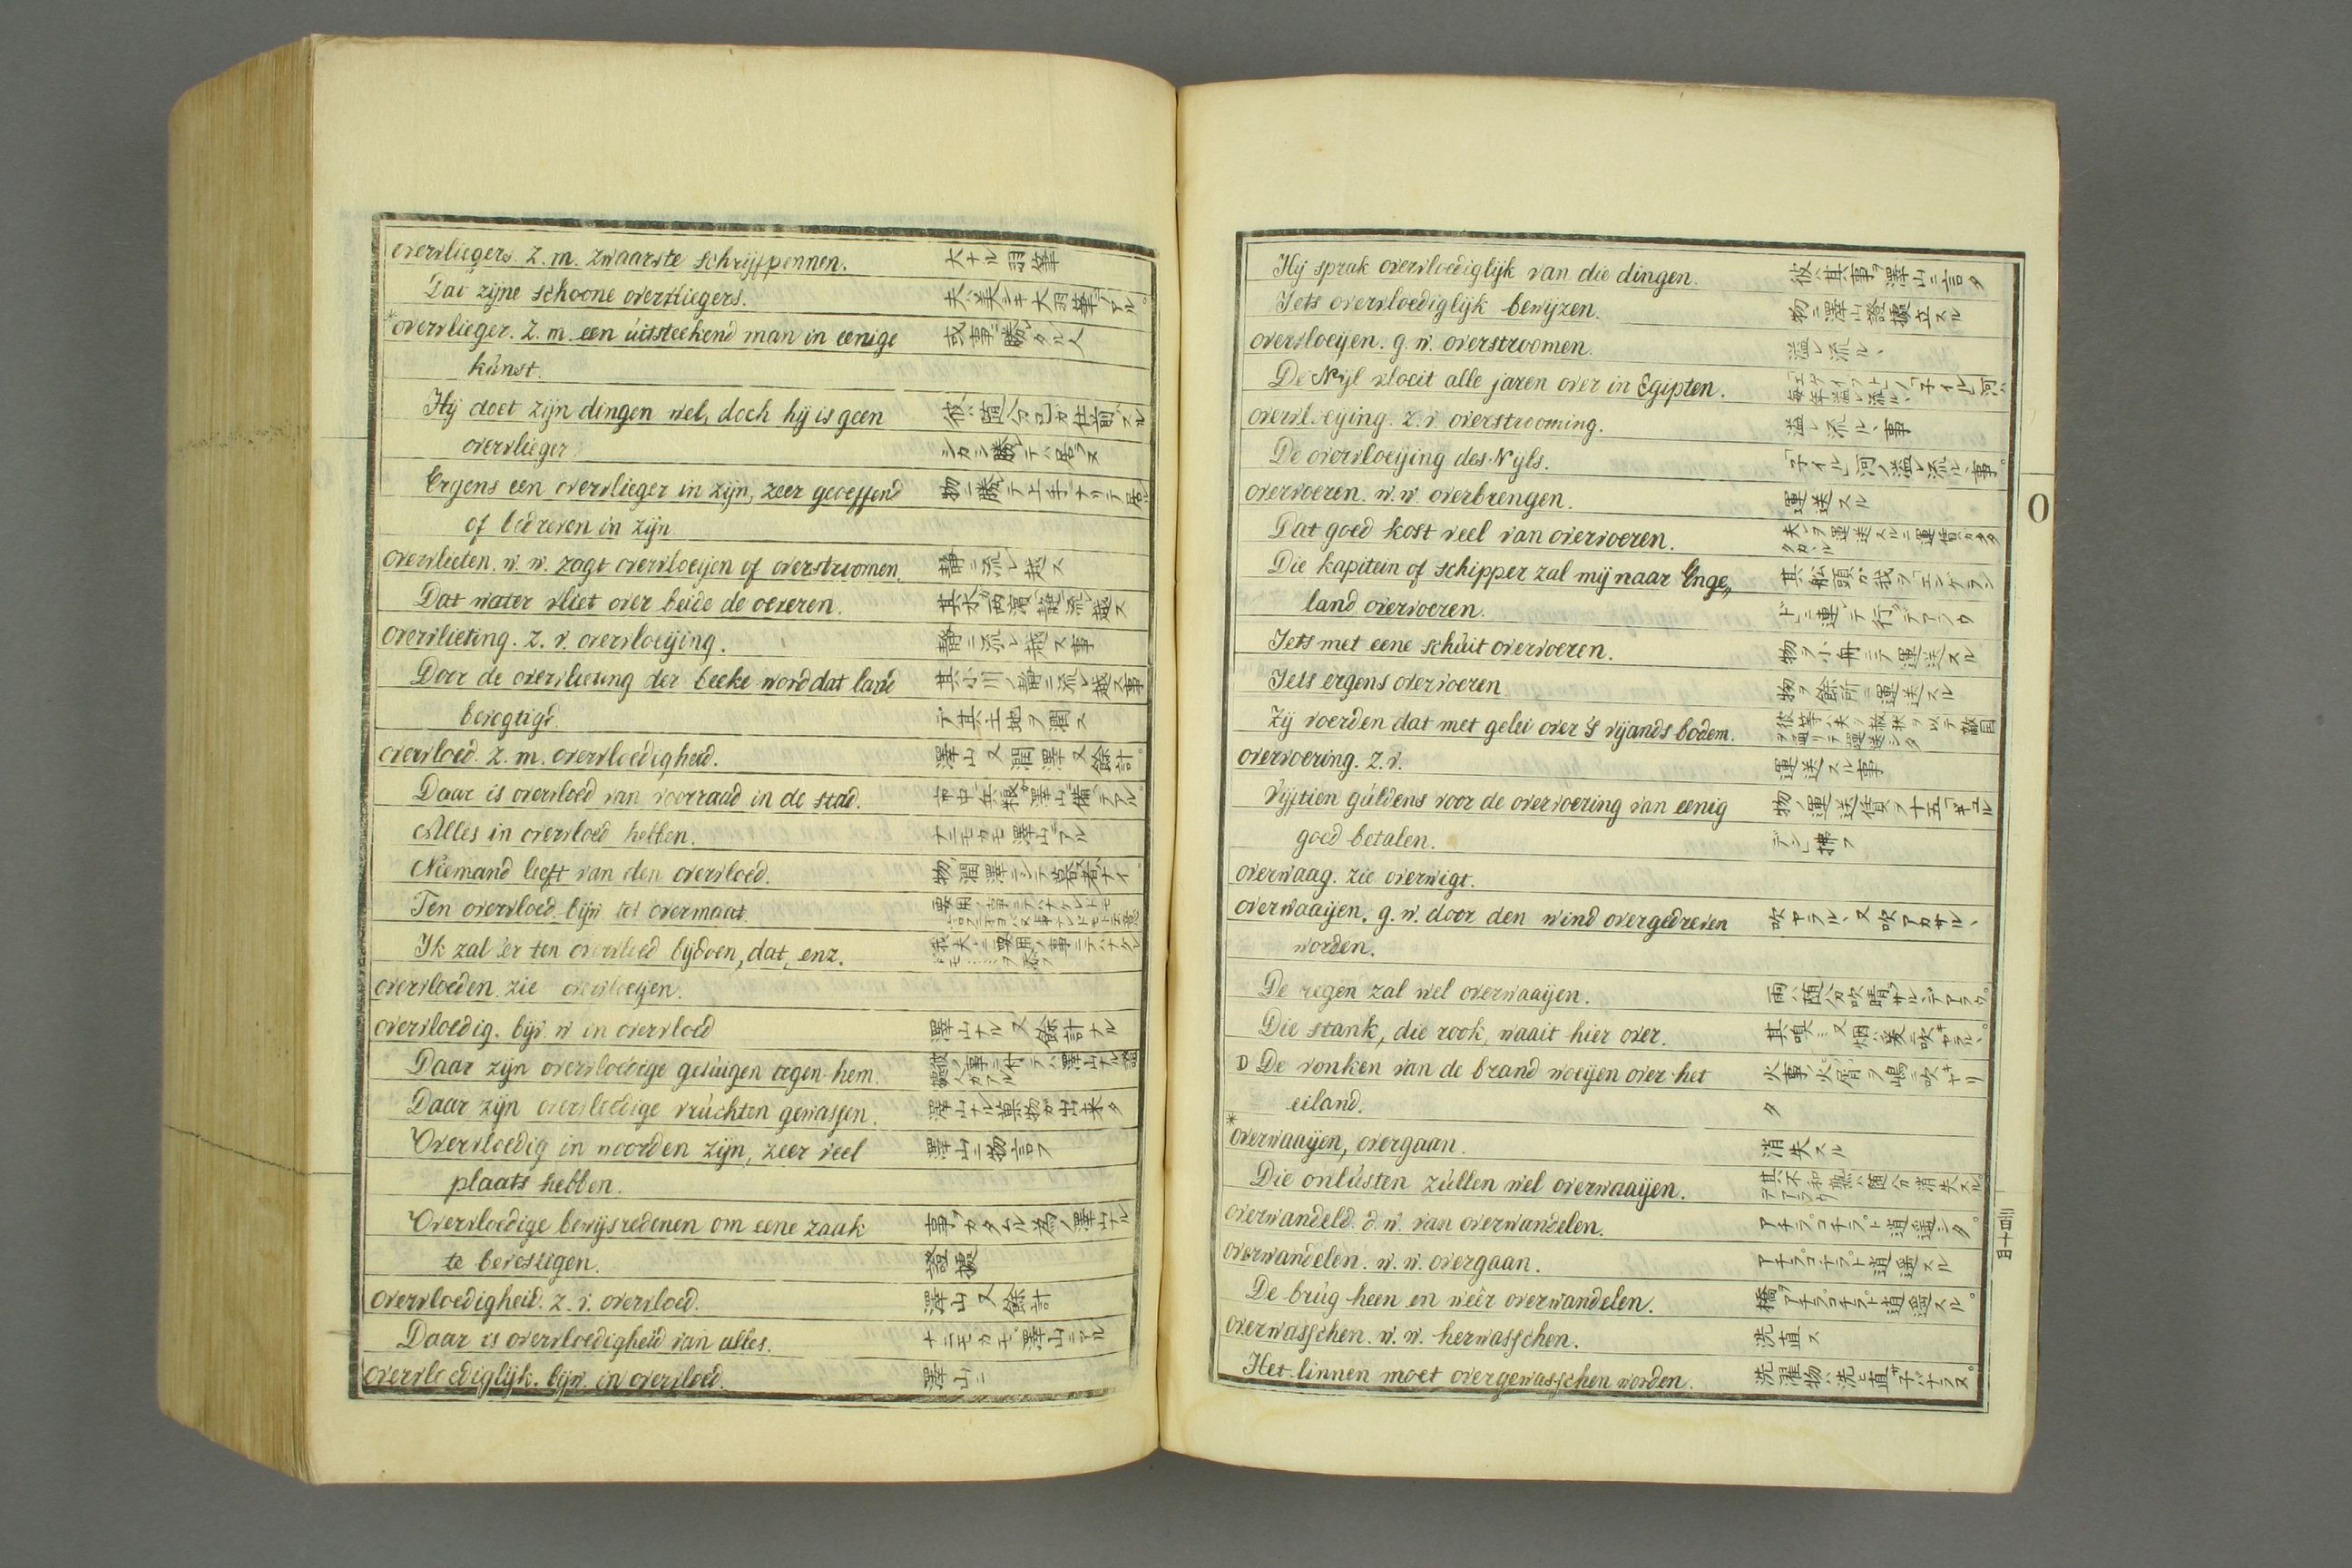 overvliegers. z. m. zwaarste schrijfpennen. 大ナル羽筆
Dat zijne schoone overvliegers. 夫ハ美シキ大羽筆デアル。
*overvlieger. z. m. een uitsteekend man in eenige 或事ニ勝レタル人
kunst.
Hij doet zijn dingen wel, doch hij is geen
overvlieger シカシ勝レテハ居ラヌ
Ergens een overvlieger in zijn, zeer geoeffend 物ニ勝レテ上手ニナリテ居ル
of bedreven in zijn
overvlieten. w. w. zagt overvloeijen of overstroomen. 静ニ流レ越ス
Dat water vliet over beide de oeveren.
overvlieting. z. v. overvloeijing. 静ニ流レ越ス事
Door de overvlieting der beeke word dat land 其小川ノ静ニ流レ越ス事
bevogtigd. デ其土地ヲ潤ス
overvloed. z. m. overvloedigheid. 澤山又潤澤又餘計。
Daar is overvloed van voorraad in de stad.
Alles in overvloed hebben. ナニモカモ澤山ニアル
Niemand leeft van den overvloed.
Ten overvloed. bijw tot overmaat.
Ik zal er ten overvloed bijdoen, dat, enz.
overvloeden. zie overvloeijen.
overvloedig. bijv. w in overvloed 澤山ナル又餘計ナル
Daar zijn overvloedige getuigen tegen hem.
Daar zijn overvloedige vruchten gewassen. 澤山ナル菓物ガ出来タ
Overvloedig in woorden zijn, zeer veel 澤山ニ物言フ
plaats hebben.
Overvloedige bewijsredenen om eene zaak 事ヲカタムル為ノ澤山ナル
te bevestigen. 證據
overvloedigheid. z. v. overvloed. 澤山又餘計
Daar is overvloedigheid van alles. ナニモカモ澤山ニアル
overvloediglijk. bijw. in overvloed. 澤山ニ
Hij sprak overvloediglijk van die dingen. 彼ハ其事ヲ澤山ニ言タ
Iets overvloediglijk bewijzen. 物ニ澤山證據立スル
overvloeijen. g. w. overstroomen. 溢レ流ル丶
De Nijl vloeit alle jaren over in Egipten.
overvloeijing. z. v. overstrooming. 溢レ流ル丶事
De overvloeijing des Nijls. 「子イル」河ノ溢レ流ル丶事。
overvoeren. w. w. overbrengen. 運送スル
Dat goed kost veel van overvoeren.
Die kapitein of schipper zal mij naar Enge„ 其舩頭ガ我ヲ「エンゲラン
land overvoeren. ド」ニ連レテ行クデアラウ
Iets met eene schuit overvoeren. 物ヲ小舟ニテ運送スル
Iets ergens overvoeren 物ヲ餘所ニ運送スル
Zij voerden dat met gelei over 's vijands bodem.
overvoering. z. v. 運送スル事
Vijftien guldens voor de overvoering van eenig 物ノ運送賃ヲ十五「ギュル
goed betalen. デン」拂フ
overwaag. zie overwigt.
overwaaijen. g. w. door den wind overgedreven
worden.
De regen zal wel overwaaijen.
Die stank, die rook, waait hier over.
D De vonken van de brand woeijen over het
eiland. タ
*overwaaijen, overgaan. 消失スル
Die onlusten zullen wel overwaaijen.
overwandeld. d. w. van overwandelen. アチラコチラト逍遥シタ。
overwandelen. w. w. overgaan. アチラコチラト逍遥スル
De brug heen en weêr overwandelen. 橋ヲアチラコチラト逍遥スル。
overwasschen. w. w. herwasschen. 洗直ス
Het linnen moet overgewasschen worden. 洗濯物ハ洗ヒ直サ子バナラヌ。
O